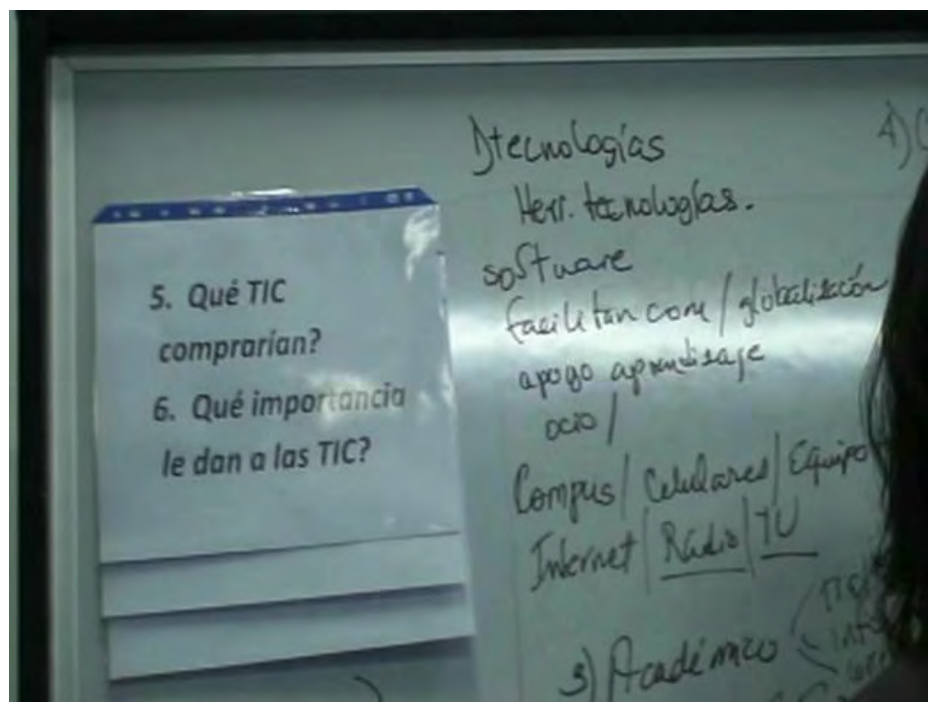 5. Qué TIC
comprarían?
6. Qué importancia
le dan a las TIC?
1) tecnologías
Herr. tecnologías.
software
facilitan com / globalización
apoyo aprendizaje
ocio /
Compus / Celulares / Equipo
Internet / Radio / TV
3) Académico
4)